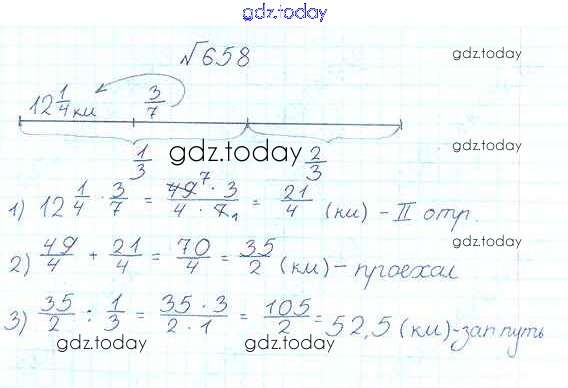 gdz.today
№658
gdz.today
12 1/4 км 3/7
1/3 gdz.today 2/3
1) 12 1/4 · 3/7 = 49 7 · 3 / 4 · 7 1 = 21/4 (км) - II отр.
gdz.today
2) 49/4 + 21/4 = 70/4 = 35/2 (км) - проехал
3) 35/2 : 1/3 = 35 · 3 / 2 · 1 = 105/2 = 52,5 (км) - зап путь
gdz.today gdz.today